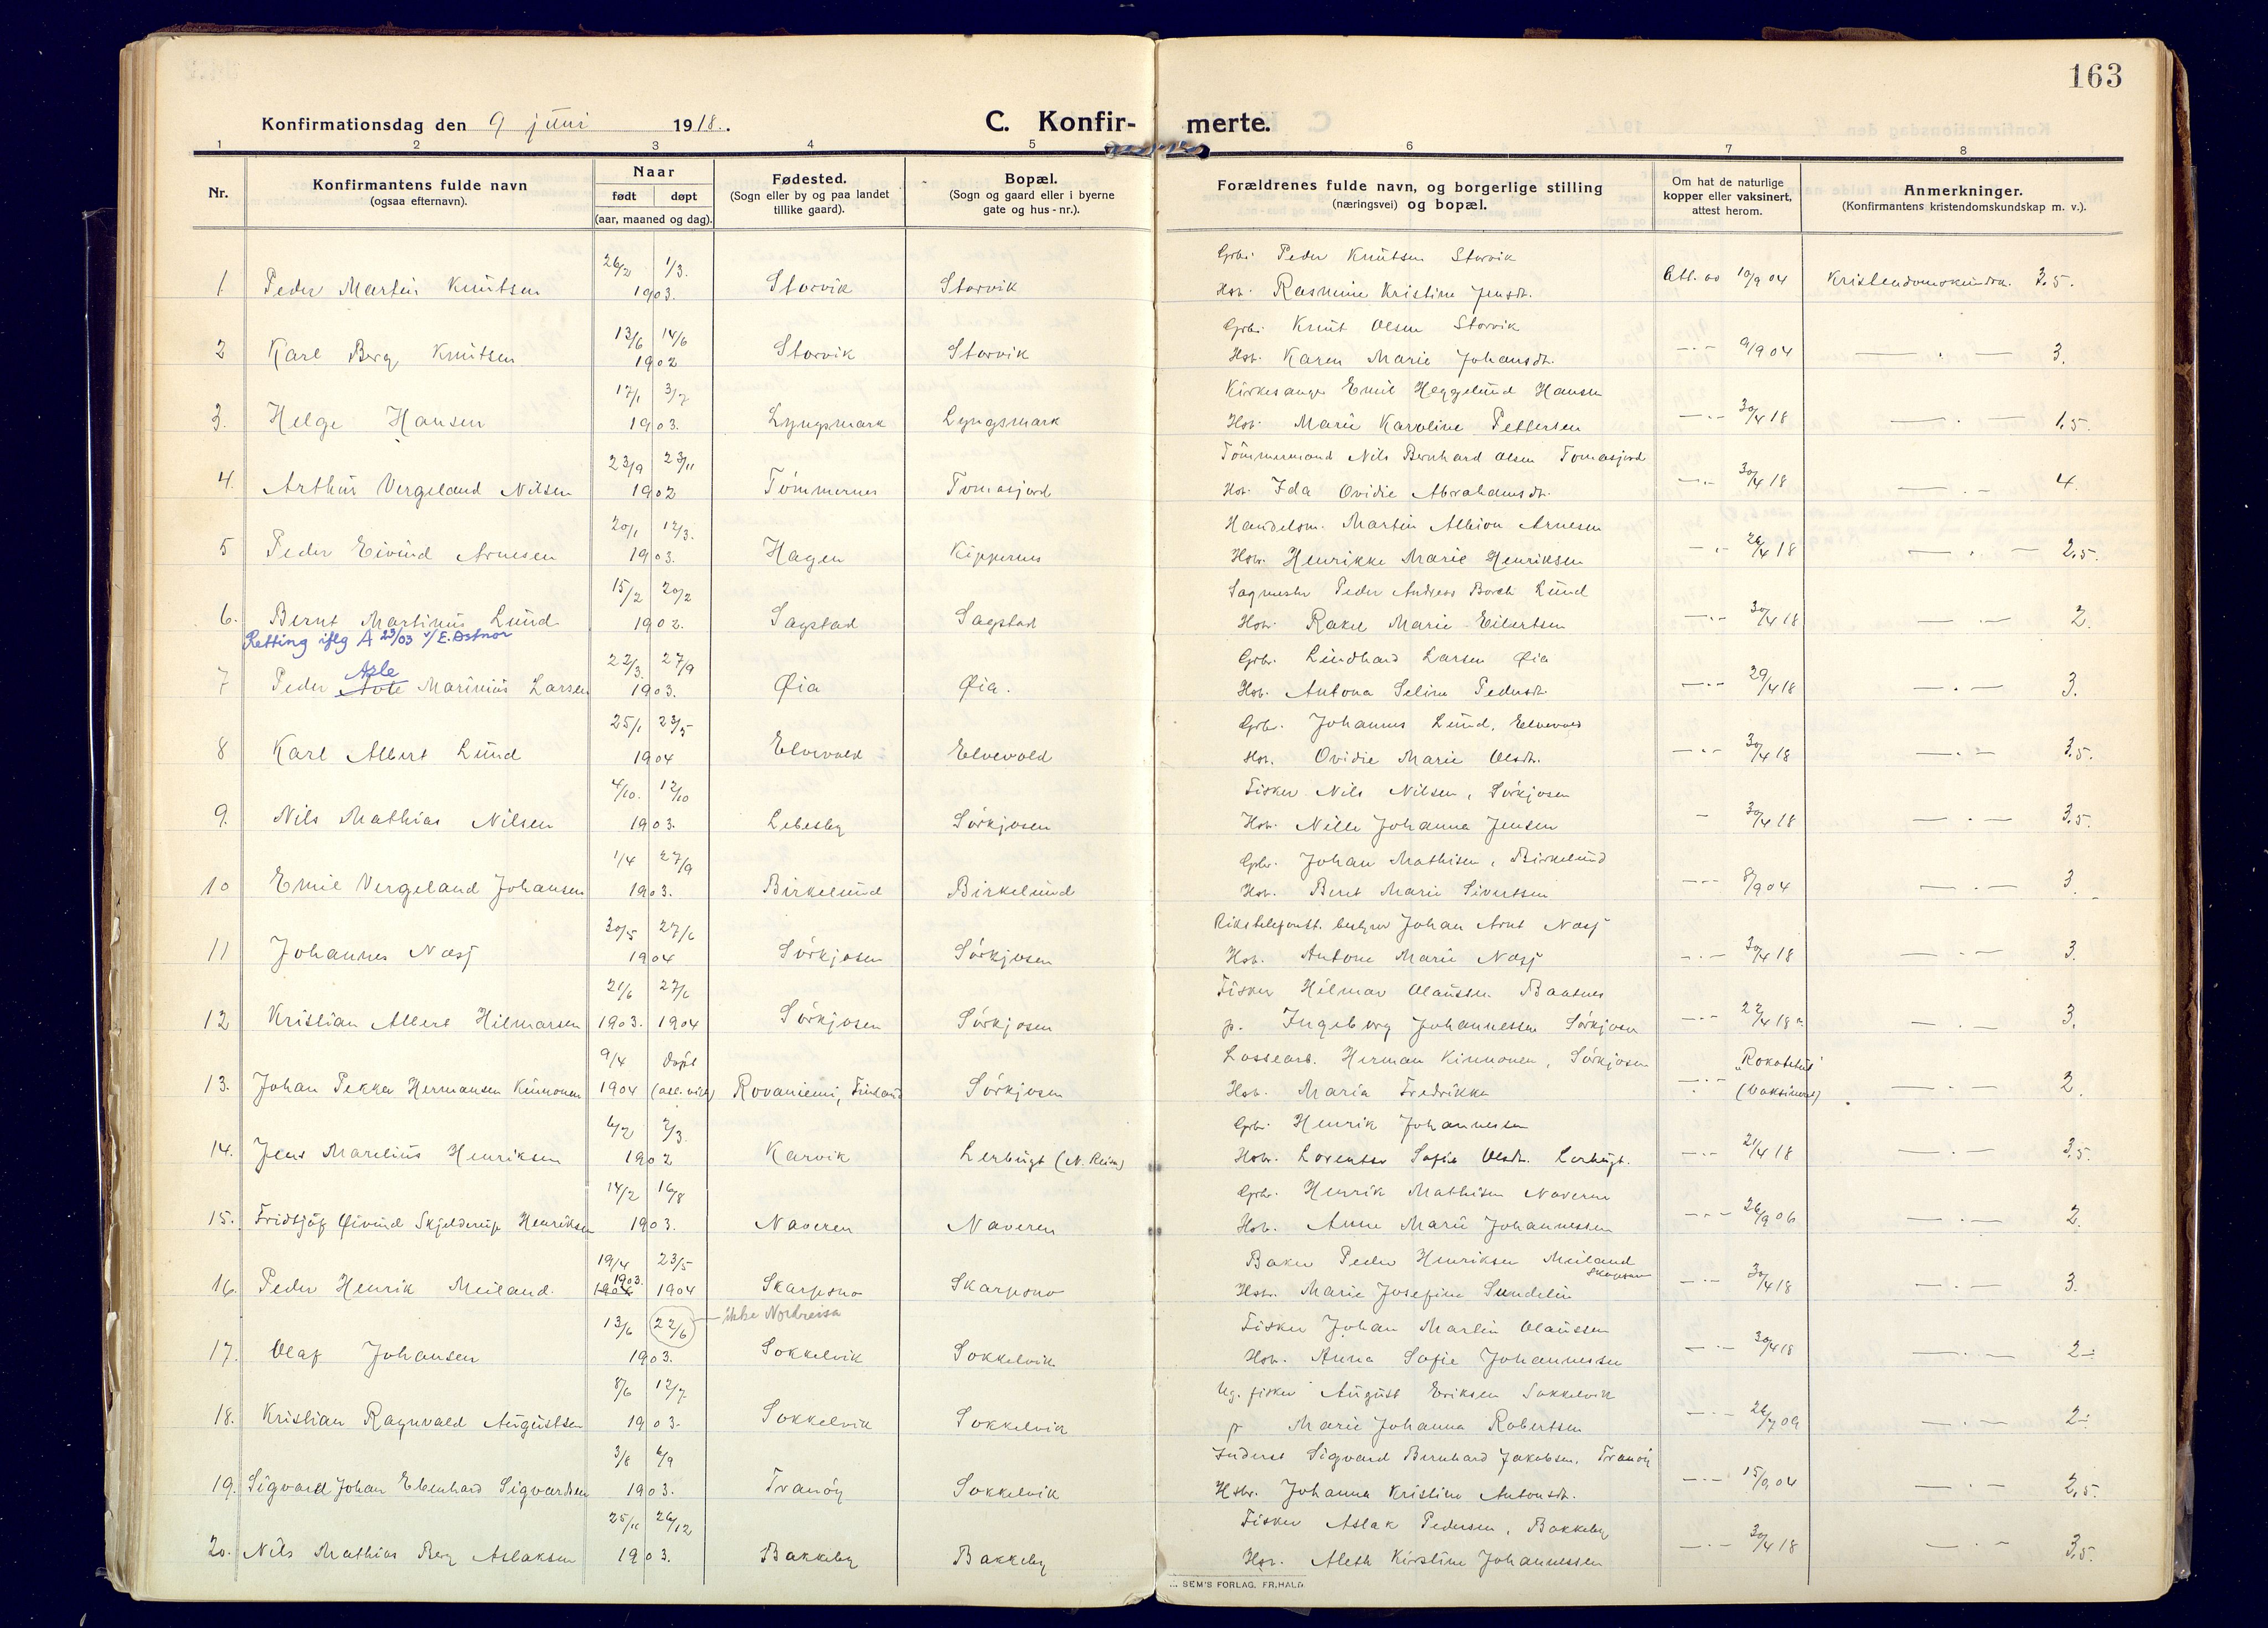 163
Konfirmationsdag den 9 juni 1918.
C. Konfir- merte.
1 2 3 4 5 6 7 8
Nr.
Konfirmantens fulde navn
(ogsaa efternavn).
Naar
født døpt
(aar, maaned og dag).
Fødested.
(Sogn eller by og paa landet
tillike gaard).
Bopæl.
(Sogn og gaard eller i byerne
gate og hus-nr.).
Forældrenes fulde navn, og borgerlige stilling
(næringsvei) og bopæl.
Om hat de naturlige
kopper eller vaksinert,
attest herom.
Anmerkninger.
(Konfirmantens kristendomskundskap m. v.).
26/2 1/3. Grbr. Peder Knutsen Storvik
1 Peder Martin Knutsen 1903. Storvik Storvik Hstr. Rasmine Kristine Jensdt. Att. av 10/9 04 Kristendomskundsk. 3.5.
13/6 14/6 Grbr. Knut Olsen Storvik
2 Karl Berg Knutsen 1902 Storvik Storvik Hstr. Karen Marie Johansdt. —·— 9/9 04 — · — 3.
17/1 3/7 Kirkesanger Emil Heggelund Hansen
3. Helge Hansen 1903. Lyngsmark Lyngsmark Hstr. Marie Karoline Pettersen —·— 30/4 18 — · — 1,5.
23/9 23/11 Tömmermand Nils Bernhard Olsen Tomasjord
4. Arthur Vergeland Nilsen 1902 Tömmernes Tomasjord Hstr. Ida Ovidie Abrahamsdt. —·— 30/4 18 — · — 4.
20/1 12/3. Handelsm. Martin Albion Arnesen
5 Peder Eivind Arnesen 1903. Hagen Kippernes Hstr. Henrikke Marie Henriksen —·— 26/4 18 — · — 2,5.
15/2 20/2 Sagmester Peder Andreas Borch Lund
6. Bernt Martinus Lund 1902. Sagstad Sagstad Hstr. Rakel Marie Eilertsen —·— 30/4 18 — · — 2.
Retting iflg A 29/03 v/E. Astnor
22/3. 27/9 Grbr. Lindhard Larsen Øia
Asle
7 Peder Marinius Larsen 1903. Øia Øia. Hstr. Antona Seline Pedersdt. —·— 29/4 18 — · — 3.
25/1 23/5 Grbr. Johannes Lund, Elvevold
8 Karl Albert Lund 1904 Elvevold Elvevold Hstr. Ovidie Marie Olsdt. —·— 30/4 18 — · — 3.5.
4/10. 12/10 Fisker Nils Nilsen, Sørkjosen
9. Nils Mathias Nilsen 1903. Lebesby Sørkjosen Hstr. Nille Johanna Jensen — 30/4 18 — · — 3.5.
1/4 27/9 Grbr. Johan Mathisen, Birkelund
10 Emil Vergeland Johansen 1903. Birkelund Birkelund Hstr. Beret Marie Sivertsen —·— 8/9 04 — · — 3.
30/5 27/6 Rikstelefonst. bestyrer Johan Arnt Næsj
11 Johannes Næsj 1904 Sørkjosen Sørkjosen Hstr. Antone Marie Næsj —·— 30/4 18 — · — 3.
21/6 27/6 Fisker Hilmar Olaussen Baatnes
12 Kristian Albert Hilmarsen 1903. 1904 Sørkjosen Sørkjosen p. Ingeborg Johannessen Sørkjosen —·— 22/4 18 — · — 3.
9/4 døpt Lossearb. Herman Kinnonen, Sørkjosen "Rokotettu"
13. Johan Pekka Hermansen Kinnonen 1904 Rovaniemi, Finland Sørkjosen Hstr. Maria Fredrikka —·— (Vaksineret) — · — 2.
6/2 2/3. Grbr. Henrik Johannessen
14. Jens Marelius Henriksen 1902 Karvik Lerbugt (N. Reisa) Hstr. Lorentse Sofie Olsdt. Lerbugt. —·— 21/4 18 — · — 3.5.
14/2 16/8 Grbr. Henrik Mathisen Naveren
15. Fridtjof Øivind Skjelderup Henriksen 1903. Naveren Naveren Hstr. Anne Marie Johannessen —·— 26/9 06 — · — 2.
19/4 23/5 Baker Peder Henriksen Meiland
1903. Skarpsno
16. Peder Henrik Meiland. 1904 1904 Skarpsno Skarpsno Hstr. Marie Josefine Sundelin —·— 30/4 18 — · — 3.
13/6 22/6 — ikke Nordreisa Fisker Johan Martin Olaussen
17. Olaf Johansen 1903. Sokkelvik Sokkelvik Hstr. Anna Sofie Johannessen —·— 30/4 18 — · — 2-:
8/6 12/7 Ug. fisker August Eriksen Sokkelvik
18. Kristian Ragnvald Augustsen 1903. Sokkelvik Sokkelvik p Marie Johanna Robertsen —·— 26/7 09 — · — 2-:
3/8 6/9 Inderst Sigvard Bernhard Jakobsen, Tranöy
19. Sigvard Johan Ebenhard Sigvardsen 1903. Tranöy Sokkelvik Hstr. Johanna Kristine Antonsdt. —·— 15/9 04 — · — 2,5.
25/11 26/12 Fisker Aslak Pedersen, Bakkeby
20. Nils Mathias Berg Aslaksen 1903. Bakkeby Bakkeby Hstr. Aleth Kirstine Johannessen —·— 30/4 18 — · — 3,5.
SEM'S FORLAG, FR,HALD